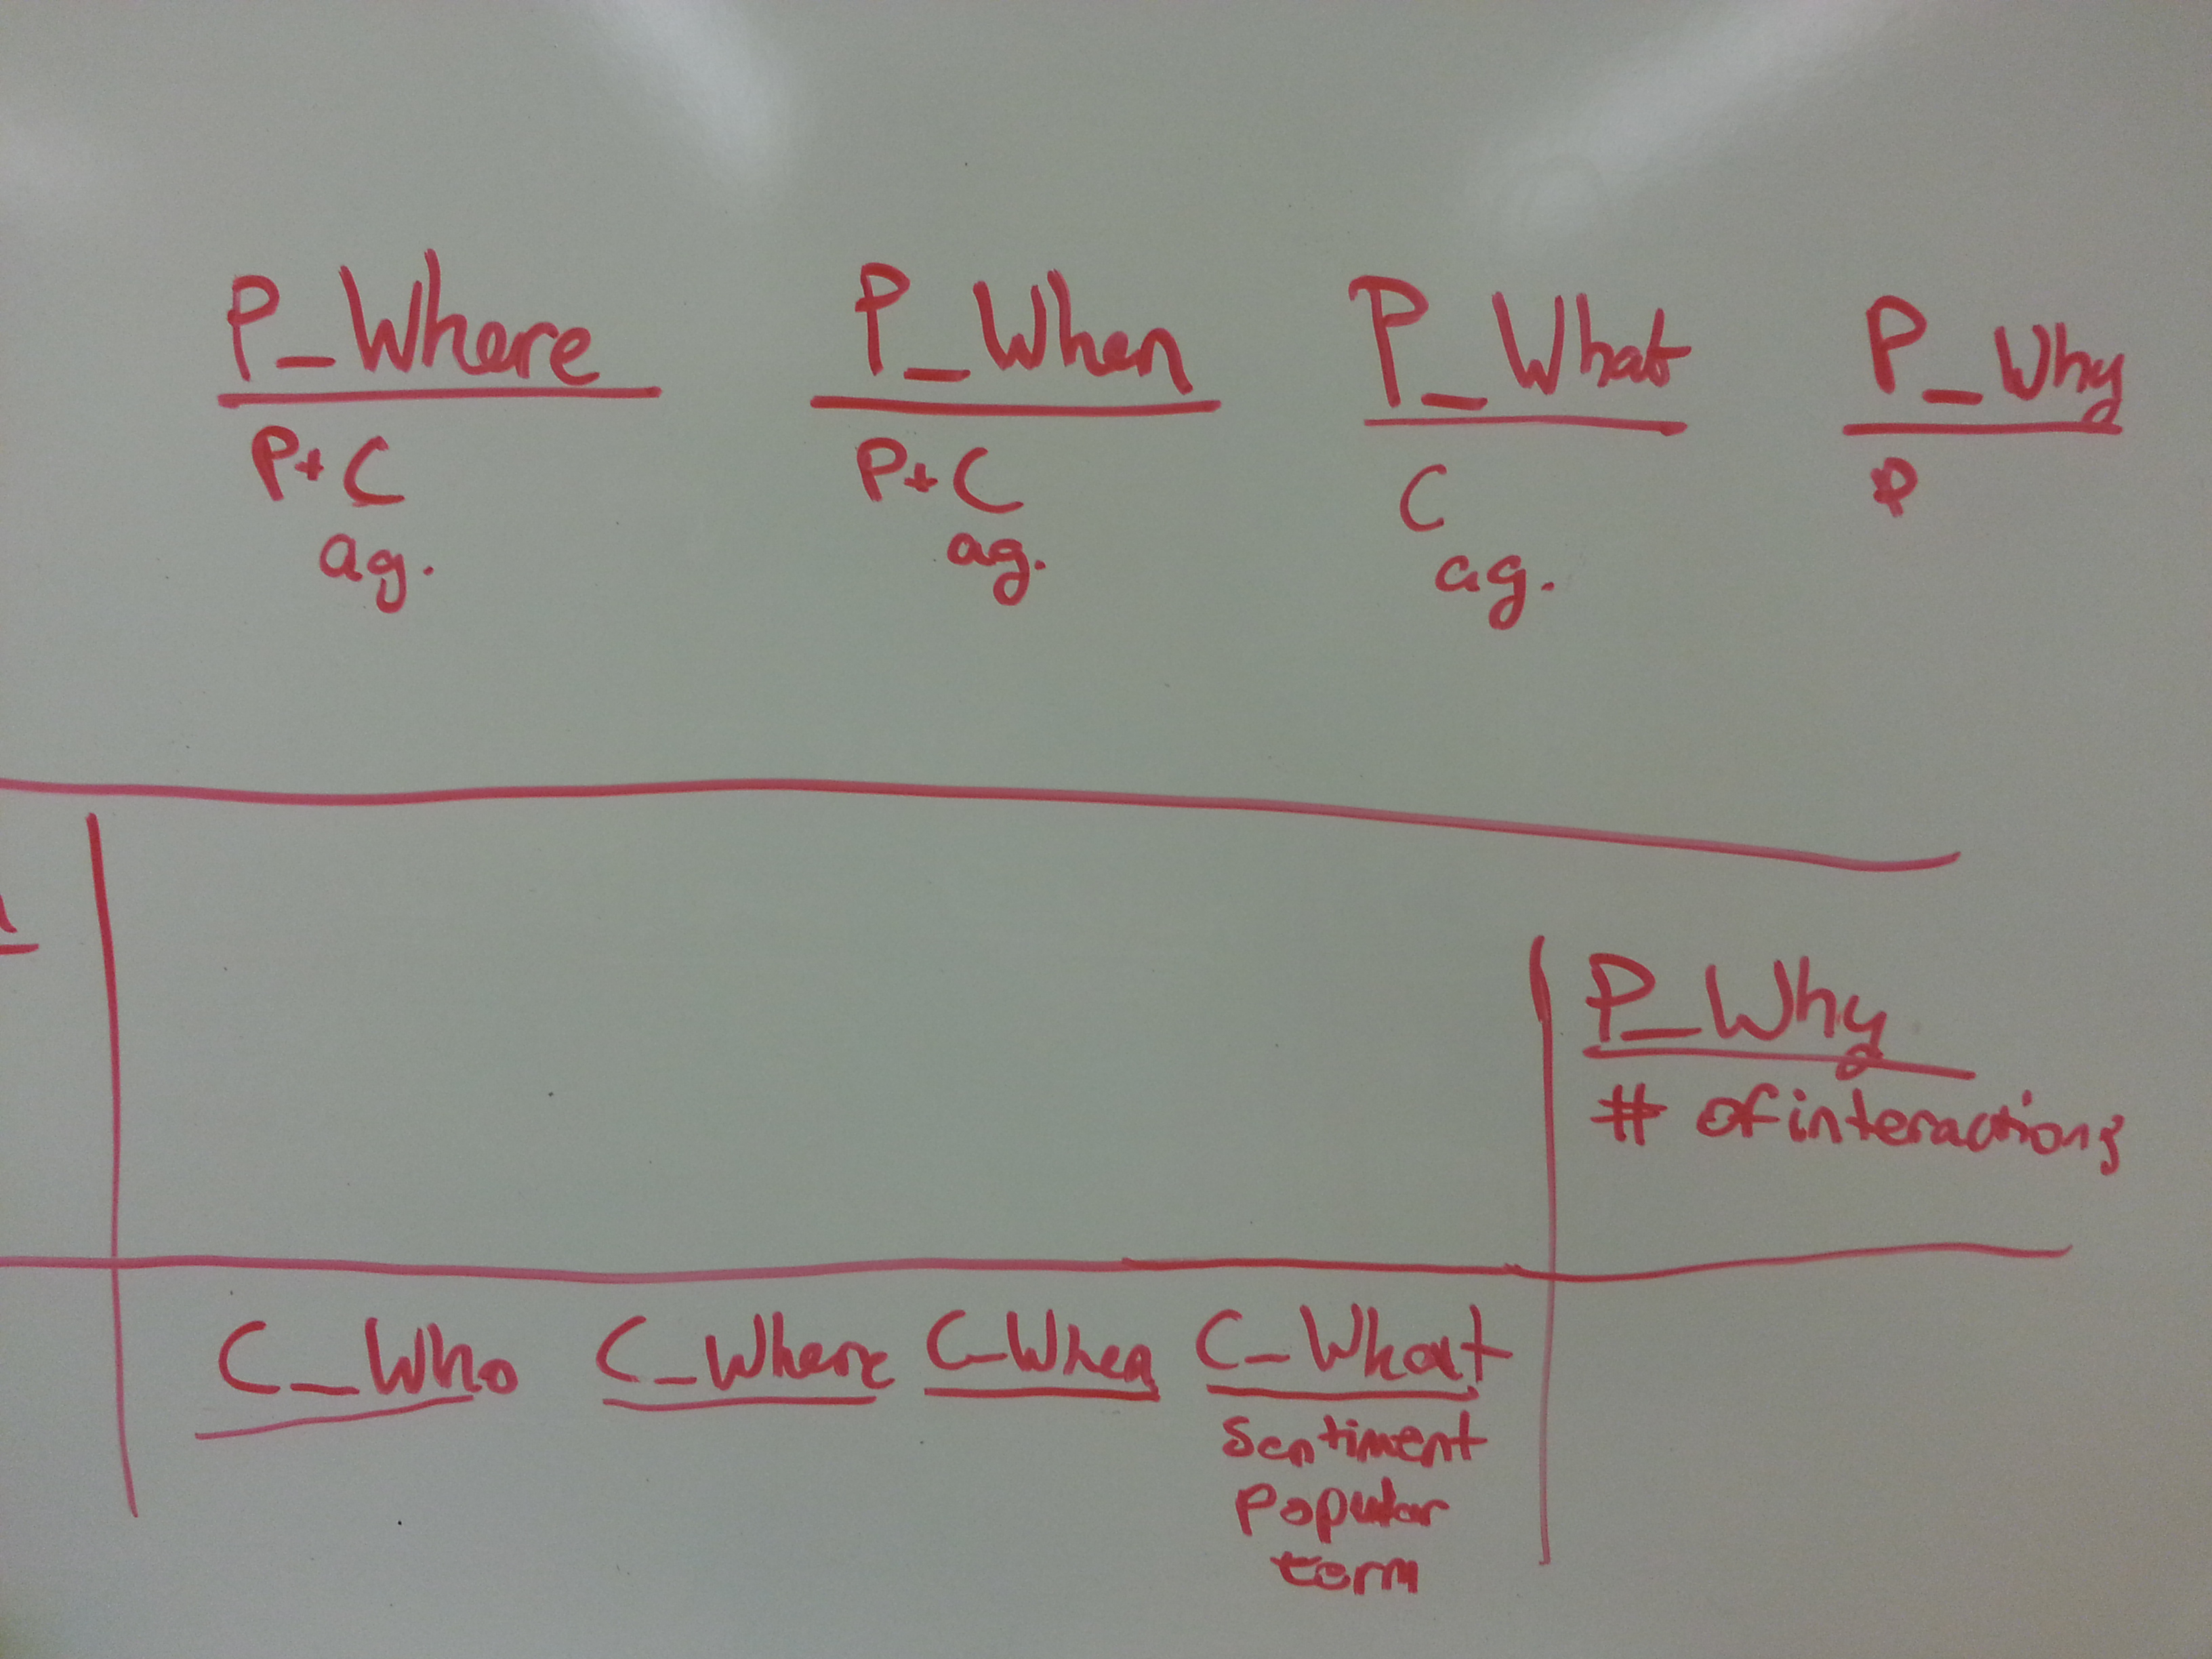 P_Where P_When P_What P_Why
P+C P+C C P
ag. ag. ag.
P_Why
# of interactions
C_Who C_Where C_When C_What
Sentiment
Popular
term